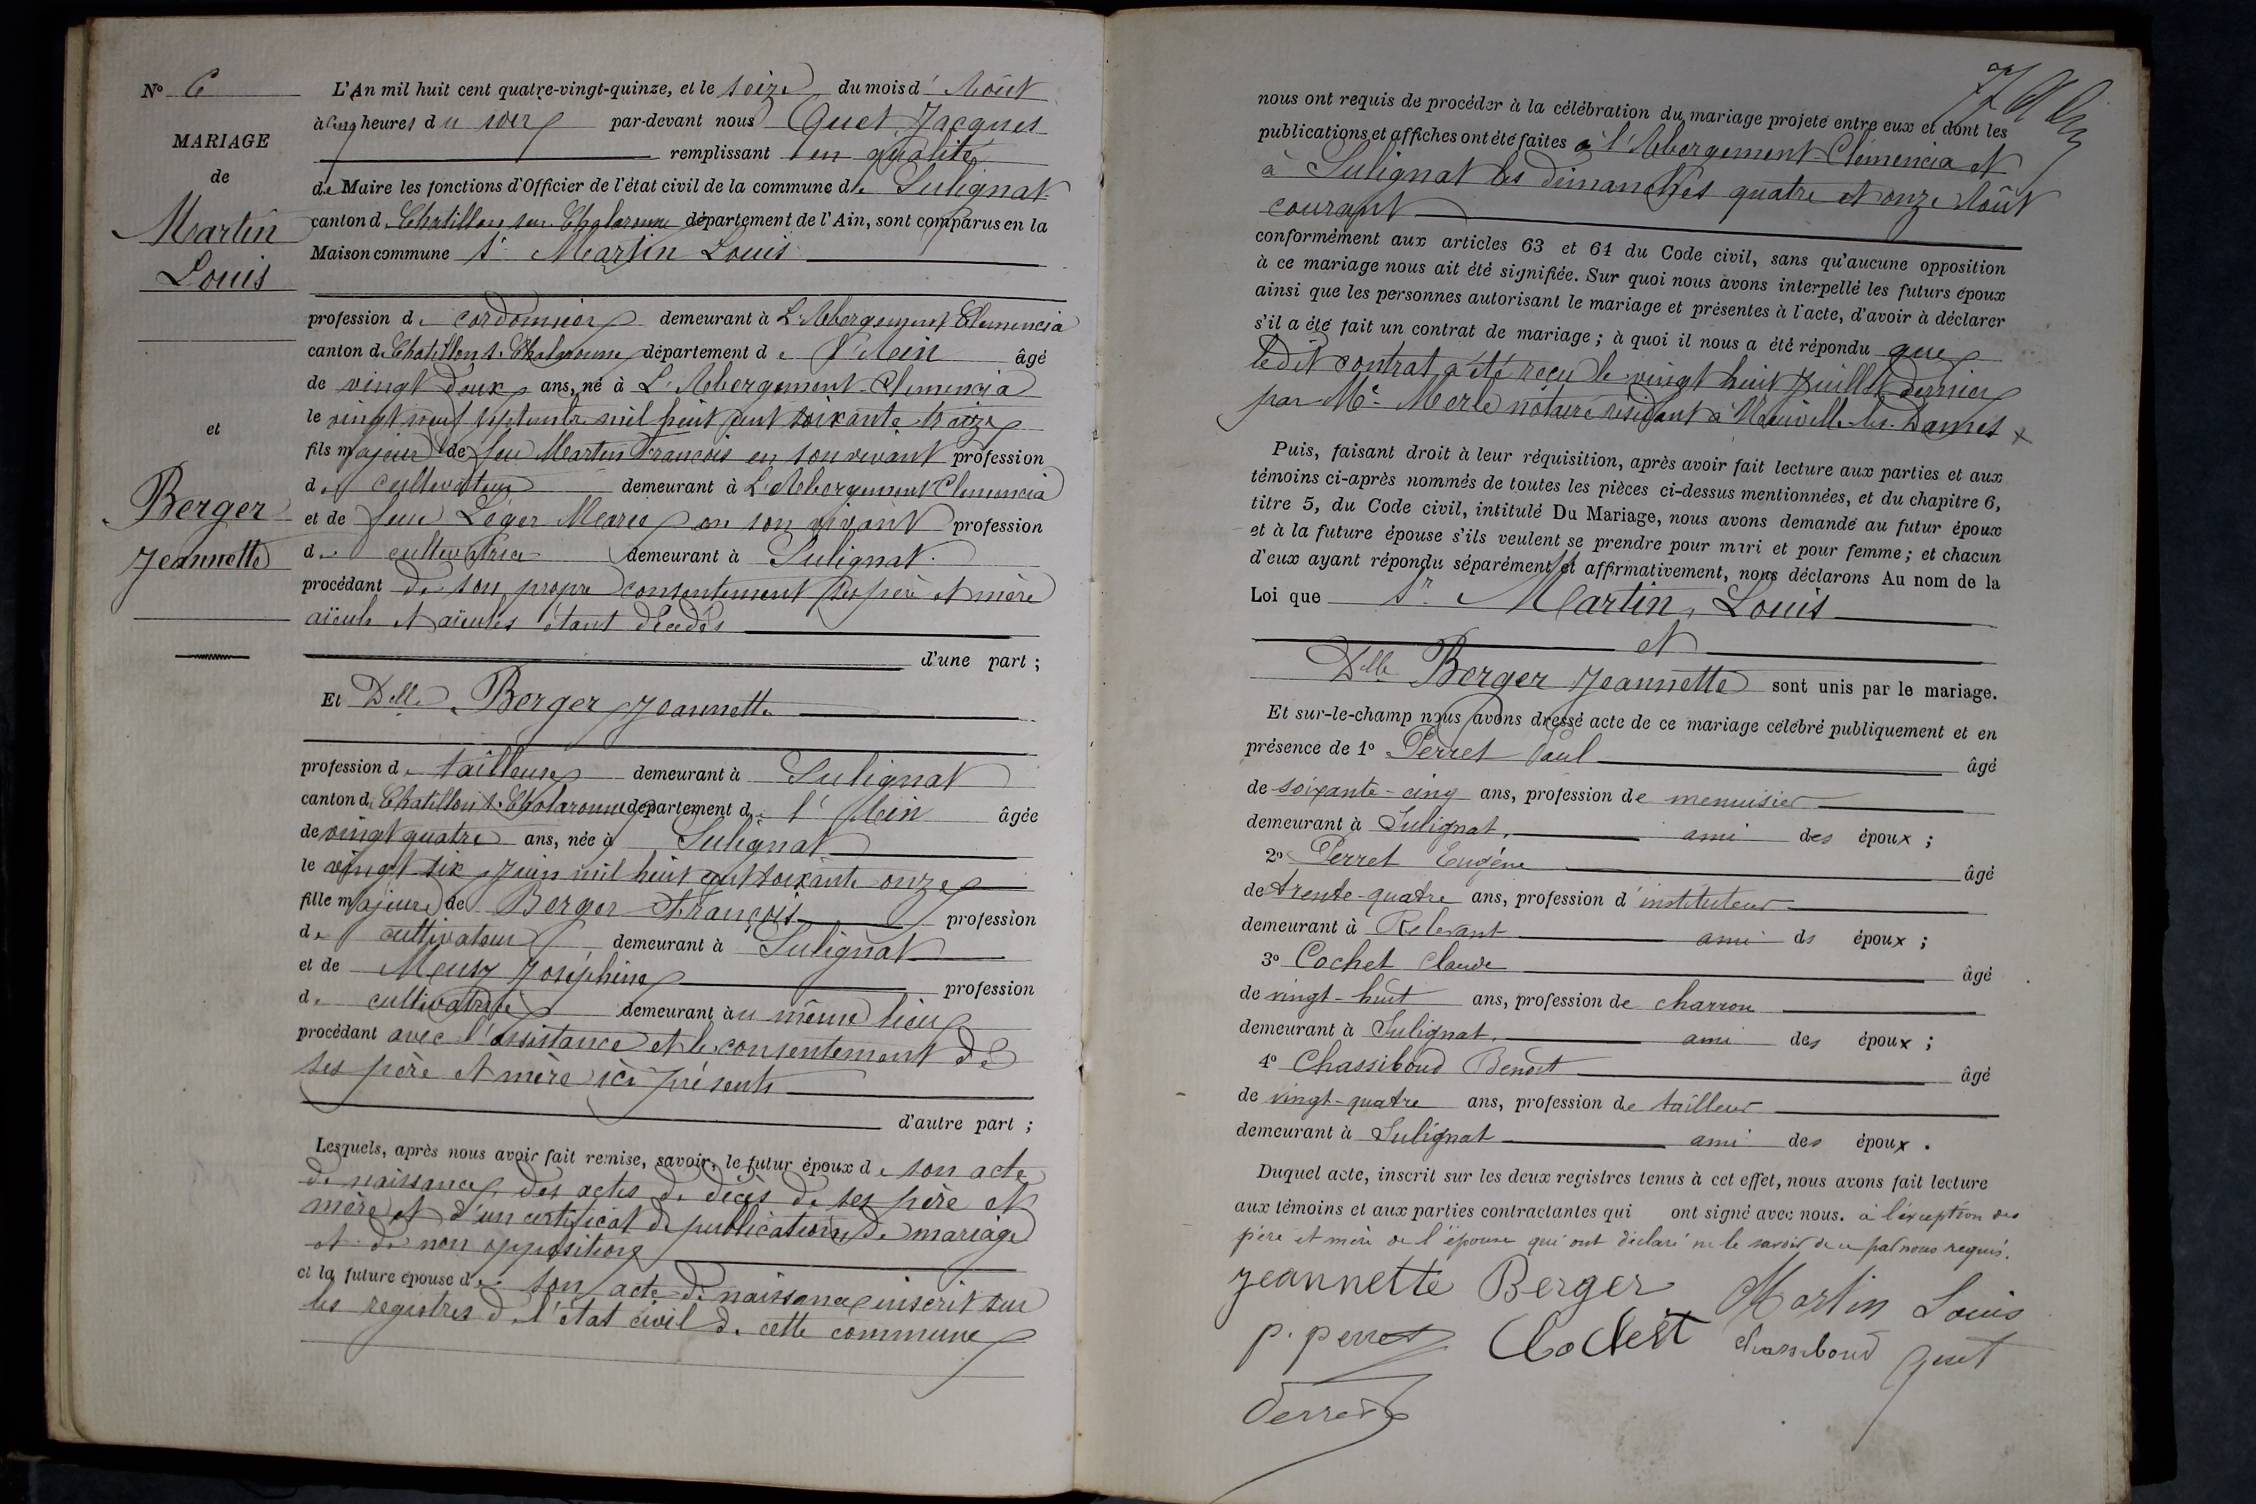 N° 6
MARIAGE
de
Martin
Louis
et
Berger
Jeannette
L'An mil huit cent quatre-vingt-quinze, et le seize du mois d'Août
à cinq heures du soir par-devant nous Quet Jacques
remplissant en qualité
de Maire les fonctions d'Officier de l'état civil de la commune de Sulignat
canton de Chatillon sur Chalaronne département de l'Ain, sont comparus en la
Maison commune Sr Martin Louis
profession de cordonnier demeurant à L'Abergement Clemencia
canton de Chatillon s. Chalaronne département de l'Ain âgé
de vingt deux ans, né à L'Abergement-Clemencia
le vingt neuf septembre mil huit cent soixante treize
fils majeur de feu Martin Francois en son vivant profession
de cultivateur demeurant à L'Abergement Clemencia
et de feue Léger Marie en son vivant profession
de cultivatrice demeurant à Sulignat.
procédant de son propre consentement ses père et mère
aïeuls et aïeules étant décédés
d'une part ;
Et Delle Berger Jeannette
profession de tailleuse demeurant à Sulignat
canton de Chatillon s. Chalaronne département de l'Ain âgée
de vingt quatre ans, née à Sulignat
le vingt six Juin mil huit cent soixante onze
fille majeure de Berger François profession
de cultivateur demeurant à Sulignat
et de Joséphine profession
de cultivatrice demeurant au même lieu
procédant avec l'assistance et le consentement de
ses père et mère ici présents
d'autre part ;
Lesquels, après nous avoir fait remise, savoir, le futur époux de son acte
de naissance, des actes de décès de ses père et
mère et d'un certificat de publication de mariage
et de non opposition
et la future épouse de son acte de naissance inscrit sur
les registres de l'état civil de cette commune
nous ont requis de procéder à la célébration du mariage projeté entre eux et dont les
publications et affiches ont été faites à l'Abergement-Clémencia et
à Sulignat les dimanches quatre et onze Août
courant
conformément aux articles 63 et 64 du Code civil, sans qu'aucune opposition
à ce mariage nous ait été signifiée. Sur quoi nous avons interpellé les futurs époux
ainsi que les personnes autorisant le mariage et présentes à l'acte, d'avoir à déclarer
s'il a été fait un contrat de mariage ; à quoi il nous a été répondu que
ledit contrat a été reçu le vingt huit Juillet dernier
par Me Merle notaire résidant à Neuville-les-Dames
Puis, faisant droit à leur réquisition, après avoir fait lecture aux parties et aux
témoins ci-après nommés de toutes les pièces ci-dessus mentionnées, et du chapitre 6,
titre 5, du Code civil, intitulé Du Mariage, nous avons demandé au futur époux
et à la future épouse s'ils veulent se prendre pour mari et pour femme ; et chacun
d'eux ayant répondu séparément et affirmativement, nous déclarons Au nom de la
Loi que Sr Martin, Louis
et
Delle Berger Jeannette sont unis par le mariage.
Et sur-le-champ nous avons dressé acte de ce mariage célébré publiquement et en
présence de 1° Perret Paul âgé
de soixante-cinq ans, profession de menuisier
demeurant à Sulignat, ami des époux ;
2° Perret Eugène âgé
de trente-quatre ans, profession d'instituteur
demeurant à Relevant ami ds époux ;
3° Cochet Claude âgé
de vingt-huit ans, profession de charron
demeurant à Sulignat, ami des époux ;
4° Chassiboud Benoît âgé
de vingt-quatre ans, profession de tailleur
demeurant à Sulignat ami des époux.
Duquel acte, inscrit sur les deux registres tenus à cet effet, nous avons fait lecture
aux témoins et aux parties contractantes qui ont signé avec nous. à l'exception des
père et mère de l'épouse qui ont déclaré ne le savoir de ce par nous requis.
Jeannette Berger Martin Louis
p. perret Cochet Chassiboud Quet
Perret